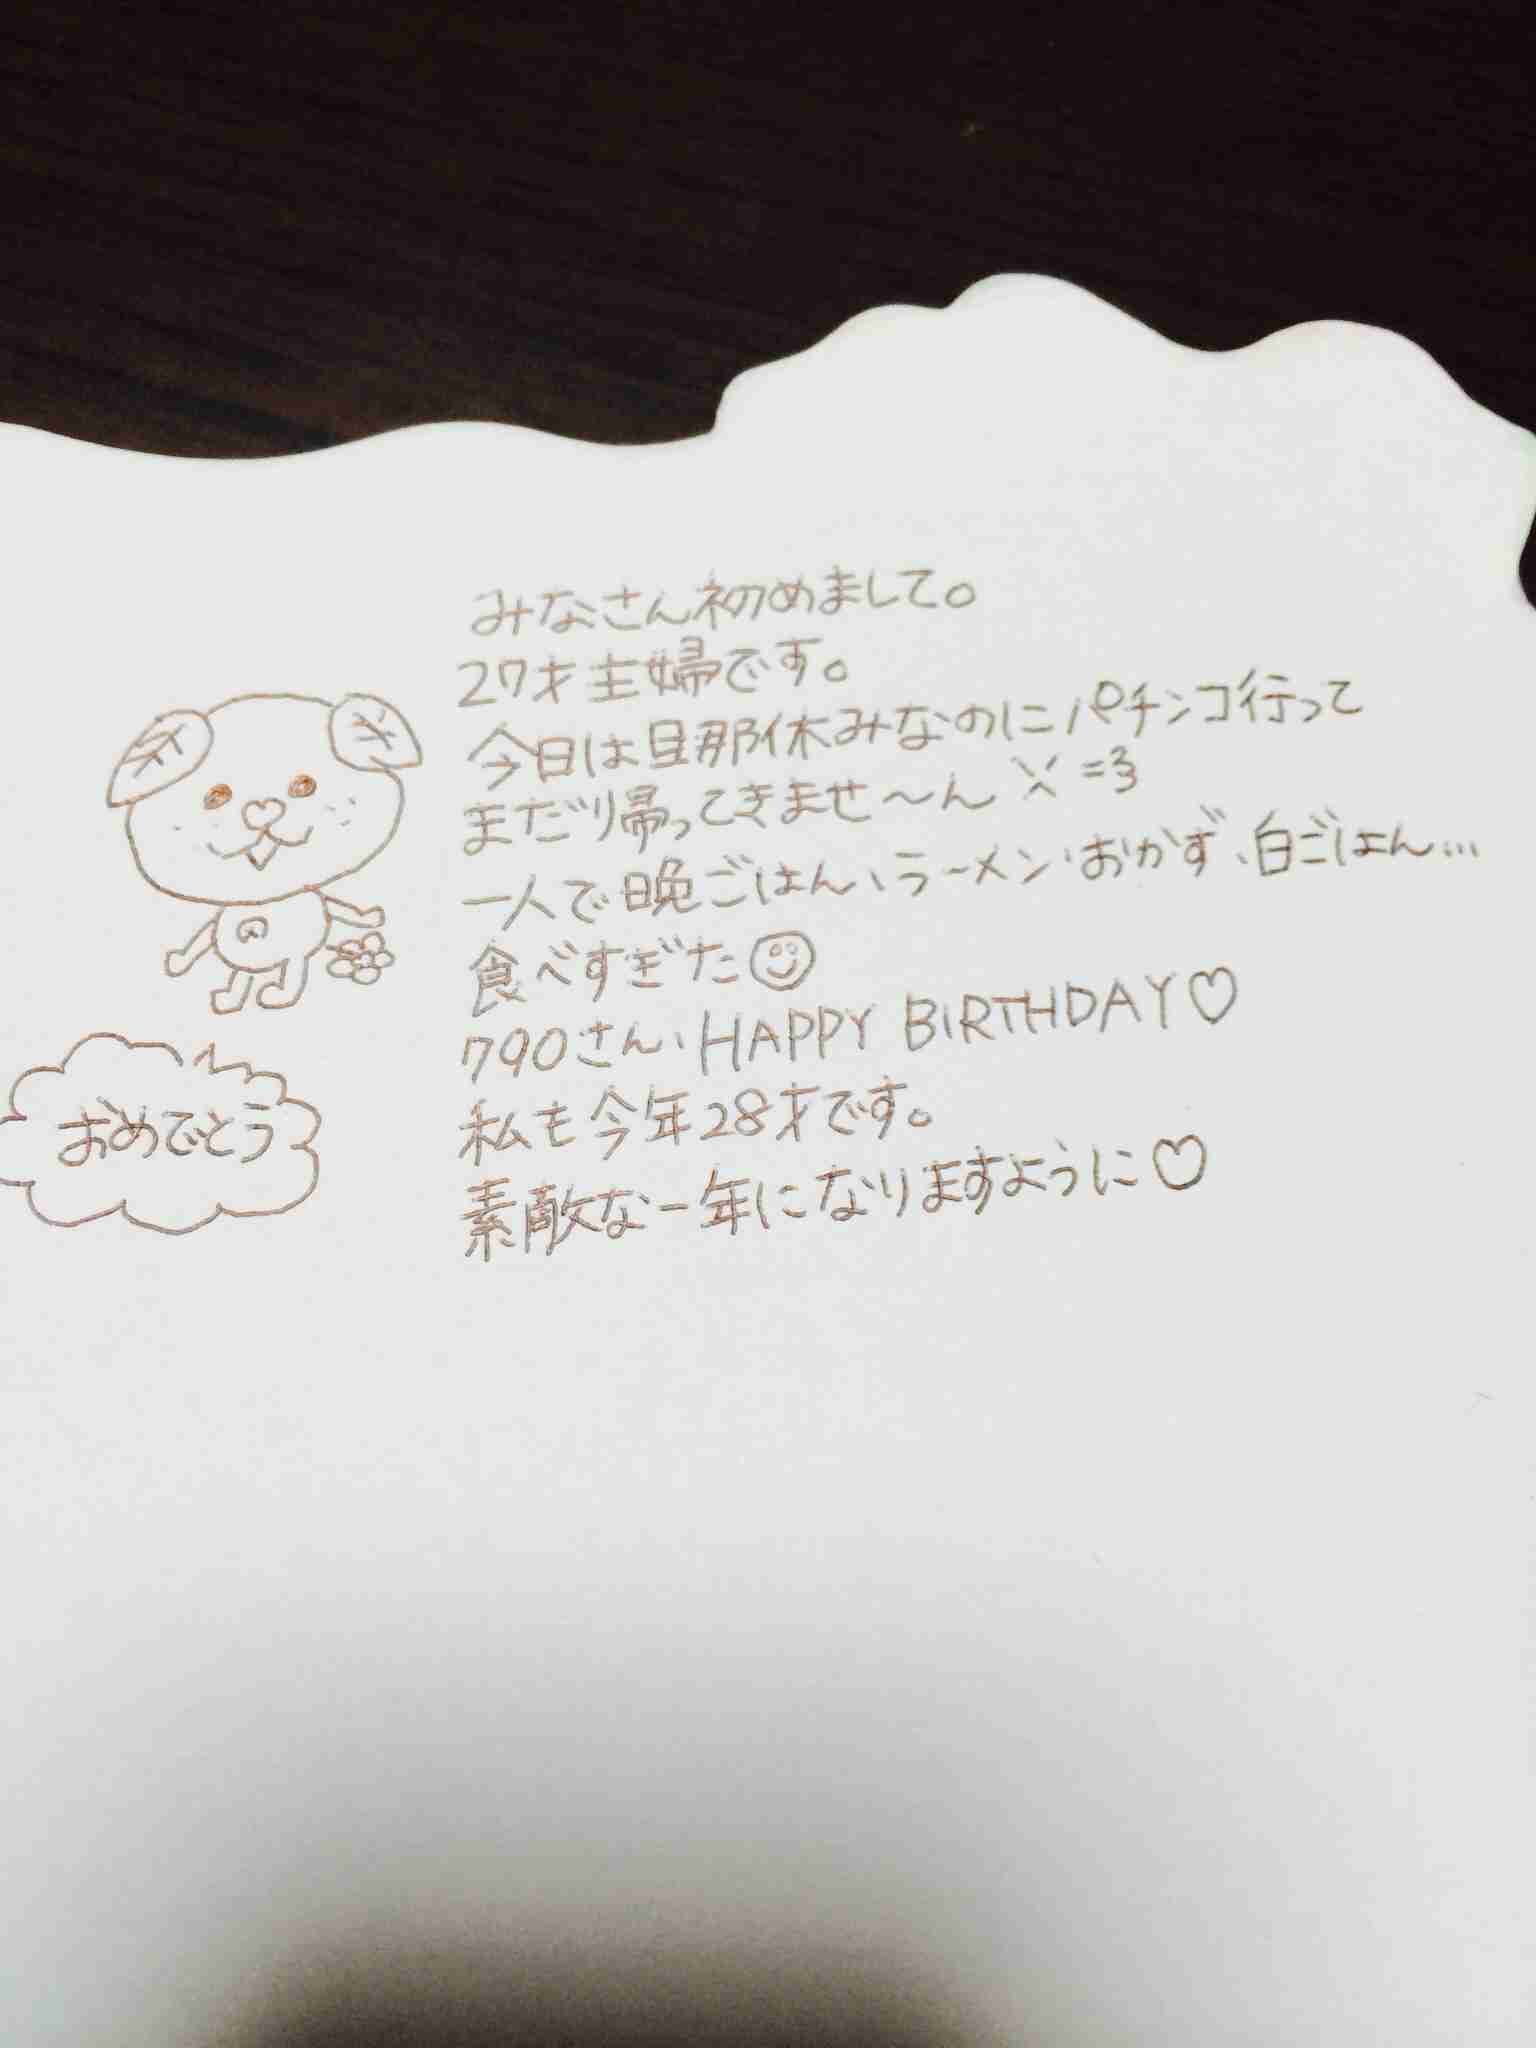 みなさん初めまして。
27才主婦です。
今日は旦那休みなのにパチンコ行って
まだ帰ってきませ〜ん =3
一人で晩ごはん、ラーメン、おかず、白ごはん…
食べすぎた☺
790さん、HAPPY BIRTHDAY♡
私も今年28才です。
素敵な一年になりますように♡
おめでとう